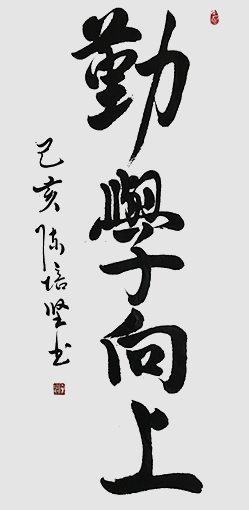 勤學向上
己亥陈培坚书